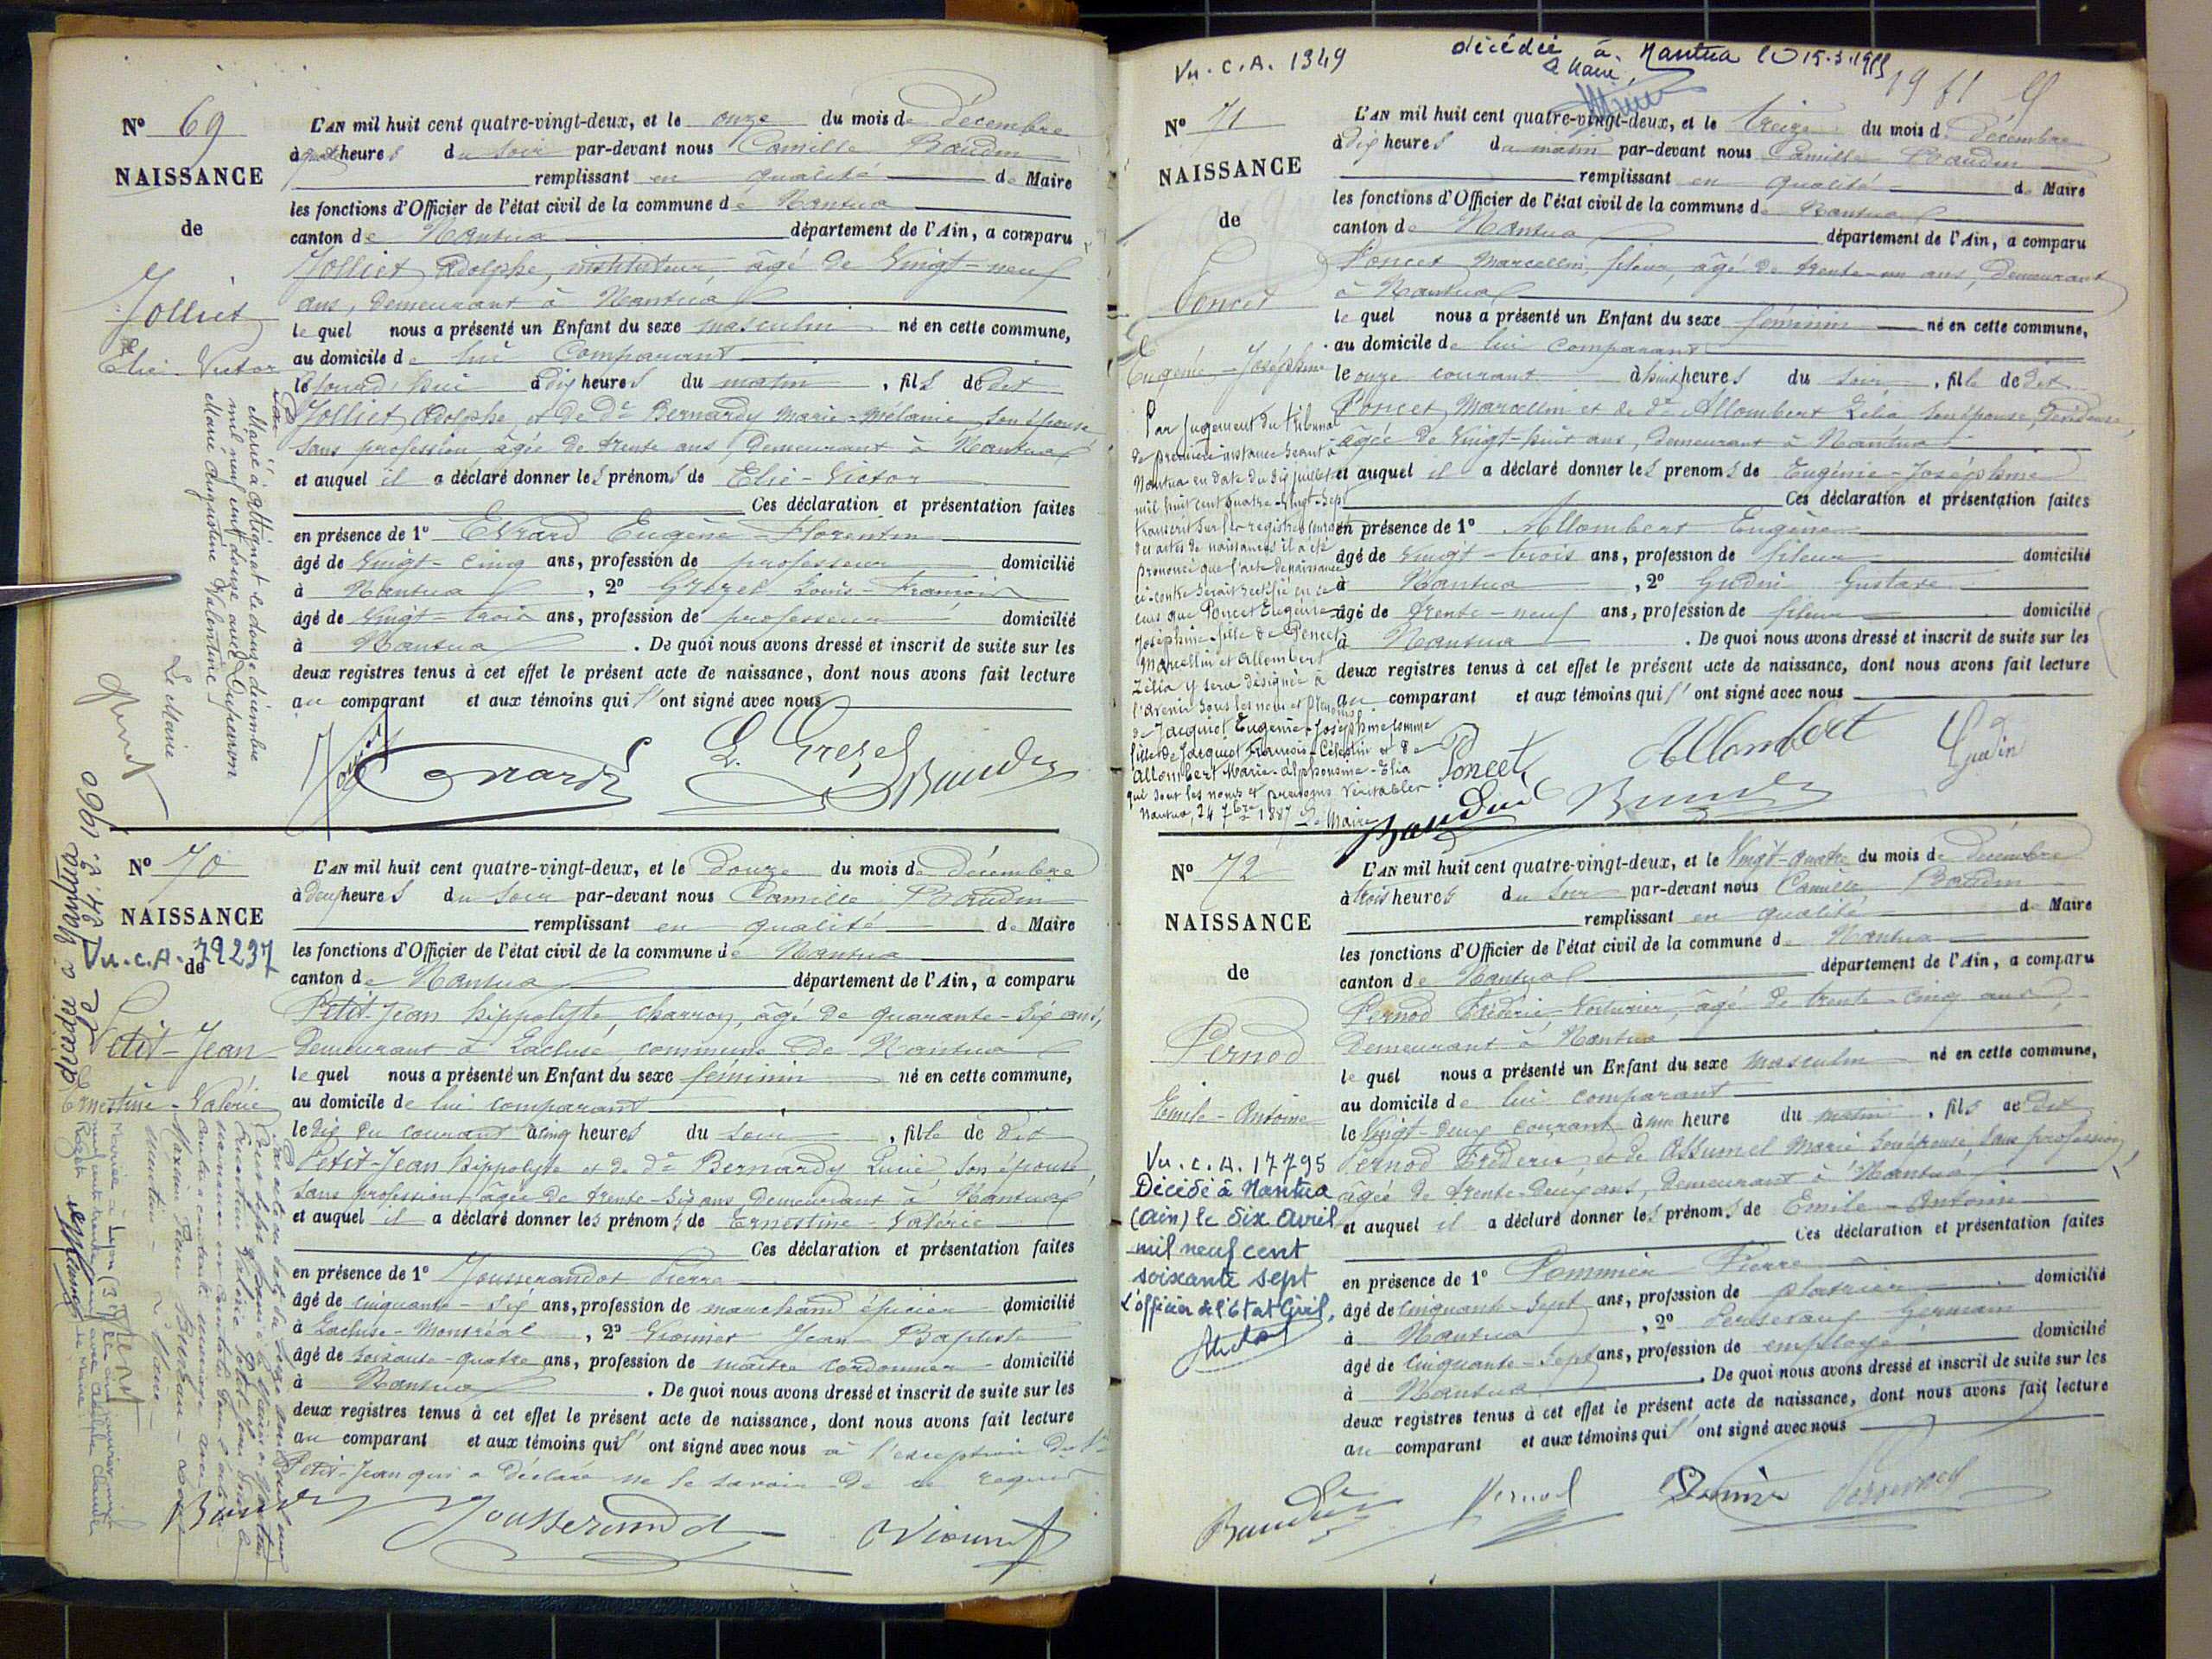 N° 69
NAISSANCE
de
Jolliet
Elie-Victor
Marié à Attignat le douze décembre
mil neuf cent douze avec Dupuvron
Marie Augustine Valentine
Le Maire
L'AN mil huit cent quatre-vingt-deux, et le onze du mois de Décembre
à quatre heures du soir par-devant nous Camille Baudin
remplissant en qualité de Maire
les fonctions d'Officier de l'état civil de la commune de Nantua
canton de Nantua département de l'Ain, a comparu
Jolliet Adolphe, instituteur, âgé de Vingt-neuf
ans, demeurant à Nantua
le quel nous a présenté un Enfant du sexe masculin né en cette commune,
au domicile de lui Comparant
le jourd'hui à dix heures du matin, fils de dit
Jolliet Adolphe, et de De Bernardy Marie-Mélanie, son épouse
sans profession, âgée de trente ans, demeurant à Nantua
et auquel il a déclaré donner les prénoms de Elie-Victor
Ces déclaration et présentation faites
en présence de 1° Evrard Eugène-Florentin
âgé de Vingt-cinq ans, profession de professeur domicilié
à Nantua, 2° Grezel Louis-François
âgé de Vingt-trois ans, profession de professeur domicilié
à Nantua. De quoi nous avons dressé et inscrit de suite sur les
deux registres tenus à cet effet le présent acte de naissance, dont nous avons fait lecture
au comparant et aux témoins qui l'ont signé avec nous
L. Grezel Baudin
N° 70
NAISSANCE
de
Vu. C.A. 79237
Petit-Jean
Ernestine-Valérie
Décédée à Nantua le 24.2.1960
L'AN mil huit cent quatre-vingt-deux, et le Douze du mois de Décembre
à deux heures du soir par-devant nous Camille Baudin
remplissant en qualité de Maire
les fonctions d'Officier de l'état civil de la commune de Nantua
canton de Nantua département de l'Ain, a comparu
Petit-Jean hippolyte, charron, âgé de quarante-six ans,
Demeurant à Lacluse, commune de Nantua
le quel nous a présenté un Enfant du sexe féminin né en cette commune,
au domicile de lui comparant
le dix du courant à cinq heures du soir, fille de dit
Petit-Jean hippolyte et de de Bernardy Lucie, son épouse,
sans profession, âgée de trente-six ans, demeurant à Nantua
et auquel il a déclaré donner les prénoms de Ernestine-Valérie
Ces déclaration et présentation faites
en présence de 1° Jousserandot Pierre
âgé de cinquante-six ans, profession de marchand épicier domicilié
à Lacluse-Montréal, 2° Vionnet Jean-Baptiste
âgé de soixante-quatre ans, profession de maître cordonnier domicilié
à Nantua. De quoi nous avons dressé et inscrit de suite sur les
deux registres tenus à cet effet le présent acte de naissance, dont nous avons fait lecture
au comparant et aux témoins qui l'ont signé avec nous à l'exception de
Petit-Jean qui a déclaré ne le savoir de ce requis
Jousserandot Vionnet
Vu. C.A. 1349
décédée à Nantua le 15.3.1955
Le Maire,
N° 71
NAISSANCE
de
Poncet
Eugénie-Joséphine
Par jugement du tribunal
de première instance séant à
Nantua en date du dix juillet
mil huit cent quatre-vingt-sept
transcrit sur les registres courants
des actes de naissances il a été
prononcé que l'acte de naissance
ci-contre serait rectifié en ce
sens que Poncet Eugénie
Joséphine fille de Poncet
Marcellin et Allombert
Zélia y sera désignée à
l'avenir sous les nom et prénoms
de Jacquiot Eugénie-Joséphine comme
fille de Jacquiot François-Célestin et de
Allombert Marie-Alphonsine-Elia
qui sont les noms et prénoms véritables.
Nantua, 24 7bre 1887 Le Maire
Baudin
L'AN mil huit cent quatre-vingt-deux, et le treize du mois de Décembre
à dix heures du matin par-devant nous Camille Baudin
remplissant en qualité de Maire
les fonctions d'Officier de l'état civil de la commune de Nantua
canton de Nantua département de l'Ain, a comparu
Poncet Marcellin, fileur, âgé de trente-un ans, demeurant
à Nantua
le quel nous a présenté un Enfant du sexe féminin né en cette commune,
au domicile de lui comparant
le onze courant à huit heures du soir, fille de dit
Poncet, Marcellin et de de Allombert Zélia, son épouse, Devideuse,
âgée de Vingt-huit ans, demeurant à Nantua
et auquel il a déclaré donner les prénoms de Eugénie-Joséphine
Ces déclaration et présentation faites
en présence de 1° Allombert Eugène
âgé de Vingt-trois ans, profession de fileur domicilié
à Nantua, 2° Gudin Gustave
âgé de trente-neuf ans, profession de fileur domicilié
à Nantua. De quoi nous avons dressé et inscrit de suite sur les
deux registres tenus à cet effet le présent acte de naissance, dont nous avons fait lecture
au comparant et aux témoins qui l'ont signé avec nous
Poncet Allombert Gudin
N° 72
NAISSANCE
de
Pernod
Emile-Antoine
Vu. C.A. 17795
Décédé à Nantua
(Ain) le six avril
mil neuf cent
soixante sept
L'officier de l'Etat Civil,
L'AN mil huit cent quatre-vingt-deux, et le Vingt-quatre du mois de Décembre
à trois heures du soir par-devant nous Camille Baudin
remplissant en qualité de Maire
les fonctions d'Officier de l'état civil de la commune de Nantua
canton de Nantua département de l'Ain, a comparu
Pernod Frédéric, Voiturier, âgé de trente-cinq ans,
Demeurant à Nantua
le quel nous a présenté un Enfant du sexe masculin né en cette commune,
au domicile de lui comparant
le Vingt-deux courant à une heure du matin, fils de dit
Pernod Frédéric, et de Assumel Marie son épouse, sans profession,
âgée de trente-deux ans, demeurant à Nantua,
et auquel il a déclaré donner les prénoms de Emile-Antoine
Ces déclaration et présentation faites
en présence de 1° Pommier Pierre
âgé de cinquante-sept ans, profession de platrier domicilié
à Nantua, 2° Germain
âgé de cinquante-sept ans, profession de employé domicilié
à Nantua. De quoi nous avons dressé et inscrit de suite sur les
deux registres tenus à cet effet le présent acte de naissance, dont nous avons fait lecture
au comparant et aux témoins qui l'ont signé avec nous
Baudin Pernod